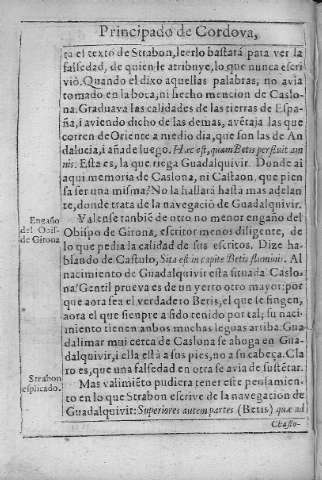 Principado de Cordova,
ta el texto de Strabon, leerlo bastará para ver la
falsedad, de quien le atribuye, lo que nunca escri
vió. Quando el dixo aquellas palabras, no avia
tomado en la boca, ni hecho mencion de Caslo-
na. Graduava las calidades de las tierras de Espa-
ña, i aviendo dicho de las demas, avētaja las que
corren de Oriente a medio dia, que son las de An
dalucia, i añade luego. Hæc est, quam Betis perfluit am
nis. Esta es, la que riega Guadalquivir. Donde ai
aqui memoria de Caslona, ni Castaon, que pien
sa ser una misma? No la hallará hasta mas adelan
te, donde trata de la navegació de Guadalquivir.
Valense tanbiē de otro no menor engaño del
Obispo de Girona, escritor menos diligente, de
lo que pedia la calidad de sus escritos. Dize ha-
blando de Castulo, Sita est in capite Betis fluminis. Al
nacimiento de Guadalquivir está situada Caslo-
na. Gentil prueva es de un yerro otro mayor: por
que aora sea el verdadero Betis, el que se fingen,
aora el que sienpre a sido tenido por tal; su naci-
miento tienen anbos muchas leguas arriba. Gua
dalimar mui cerca de Caslona se ahoga en Gua-
dalquivir, i ella está a sus pies, no a su cabeça. Cla
ro es, que una falsedad en otra se avia de sustētar.
Mas valimiēto pudiera tener este pensamien-
to en lo que Strabon escrive de la navegacion de
Guadalquivir: Superiores autem partes (Betis) quæ ad
Casto-
Engaño
del Obis-
de Girona
Strabon
esplicado.